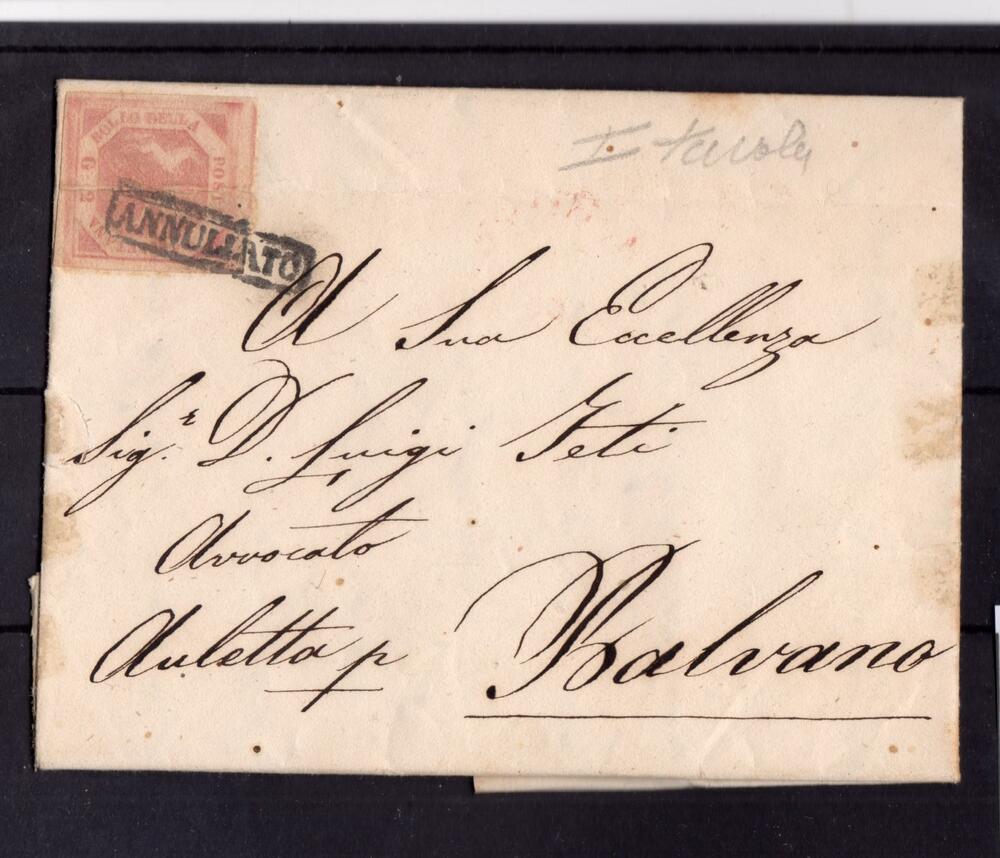 BOLLO DELLA
POST
G. 2
ANNULLATO
I tavola
A Sua Eccellenza
Sig.r D. Luigi Jeti
Avvocato
Auletta p
Balvano